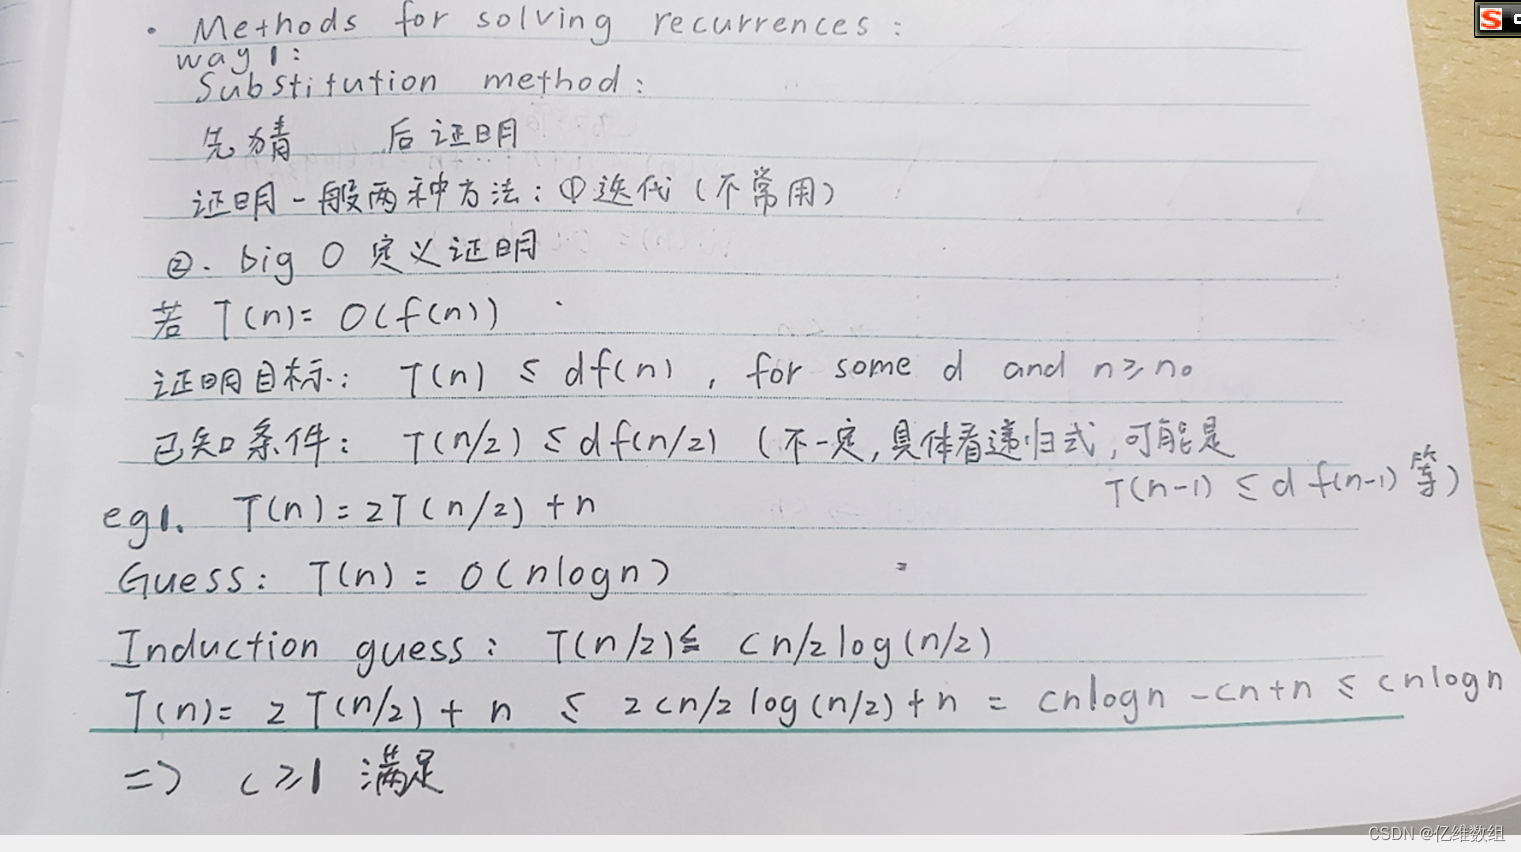 · Methods for solving recurrences:
way1:
Substitution method:
先猜 后证明
证明一般两种方法: ①迭代 (不常用)
②. big O 定义证明
若 T(n)= O(f(n))
证明目标: T(n) ≤ df(n), for some d and n≥n₀
已知条件: T(n/2) ≤ df(n/2) (不一定, 具体看递归式, 可能是
T(n-1) ≤ d f(n-1) 等)
eg1. T(n)=2T(n/2)+n
Guess: T(n) = O(nlogn)
Induction guess: T(n/2)≤ cn/2log(n/2)
T(n)= 2T(n/2)+n ≤ 2cn/2log(n/2)+n = cnlogn -cn+n ≤ cnlogn
=> c≥1 满足
CSDN @亿维数组